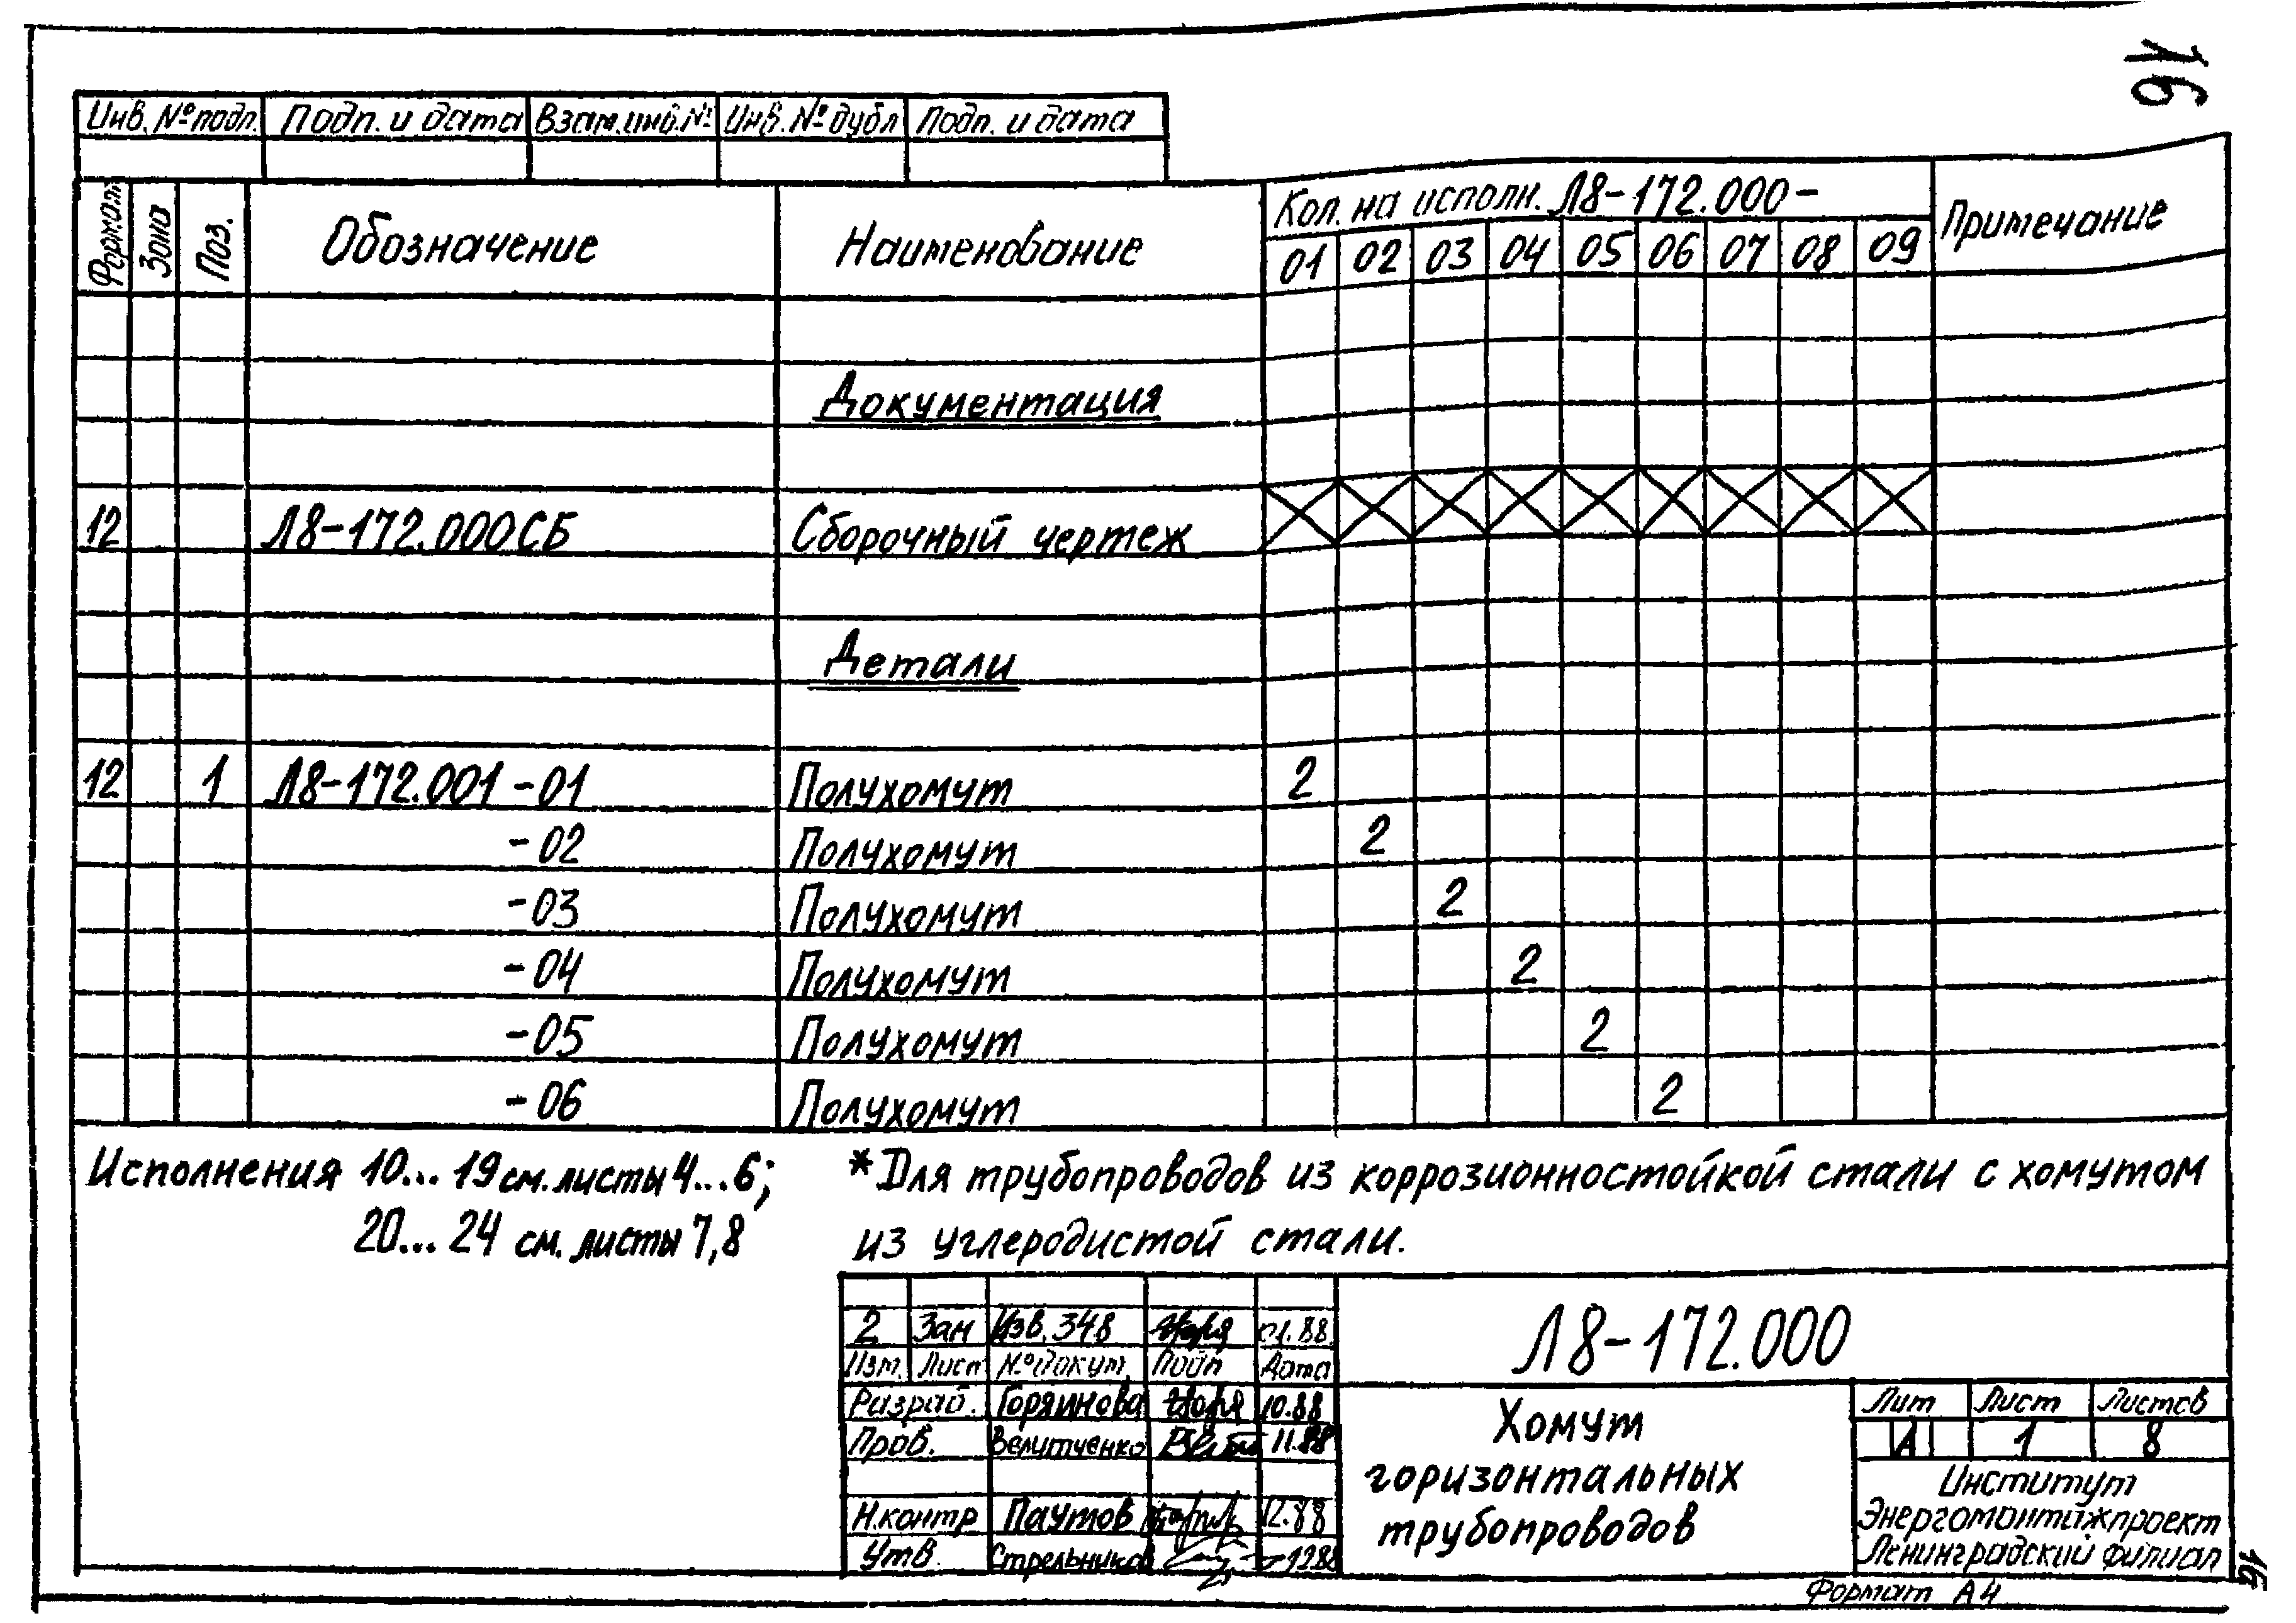 16
Инв. № подл. Подп. и дата Взам. инв. № Инв. № дубл Подп. и дата
Формат Зона Поз. Обозначение Наименование Кол. на исполн. Л8-172.000- Примечание
01 02 03 04 05 06 07 08 09
Документация
12 Л8-172.000СБ Сборочный чертеж
Детали
12 1 Л8-172.001-01 Полухомут 2
-02 Полухомут 2
-03 Полухомут 2
-04 Полухомут 2
-05 Полухомут 2
-06 Полухомут 2
Исполнения 10... 19 см. листы 4...6;
20... 24 см. листы 7,8
*Для трубопроводов из коррозионностойкой стали с хомутом
из углеродистой стали.
2 Зам Изв. 348 01.88
Изм. Лист № докум. Подп Дата
Разраб. Горяинова 10.88
Пров. Велитченко 11.88
Н.контр Паутов 12.88
Утв. Стрельников 12.88
Л8-172.000
Хомут
горизонтальных
трубопроводов
Лит Лист Листов
А 1 8
Институт
Энергомонтажпроект
Ленинградский филиал
Формат А4
16